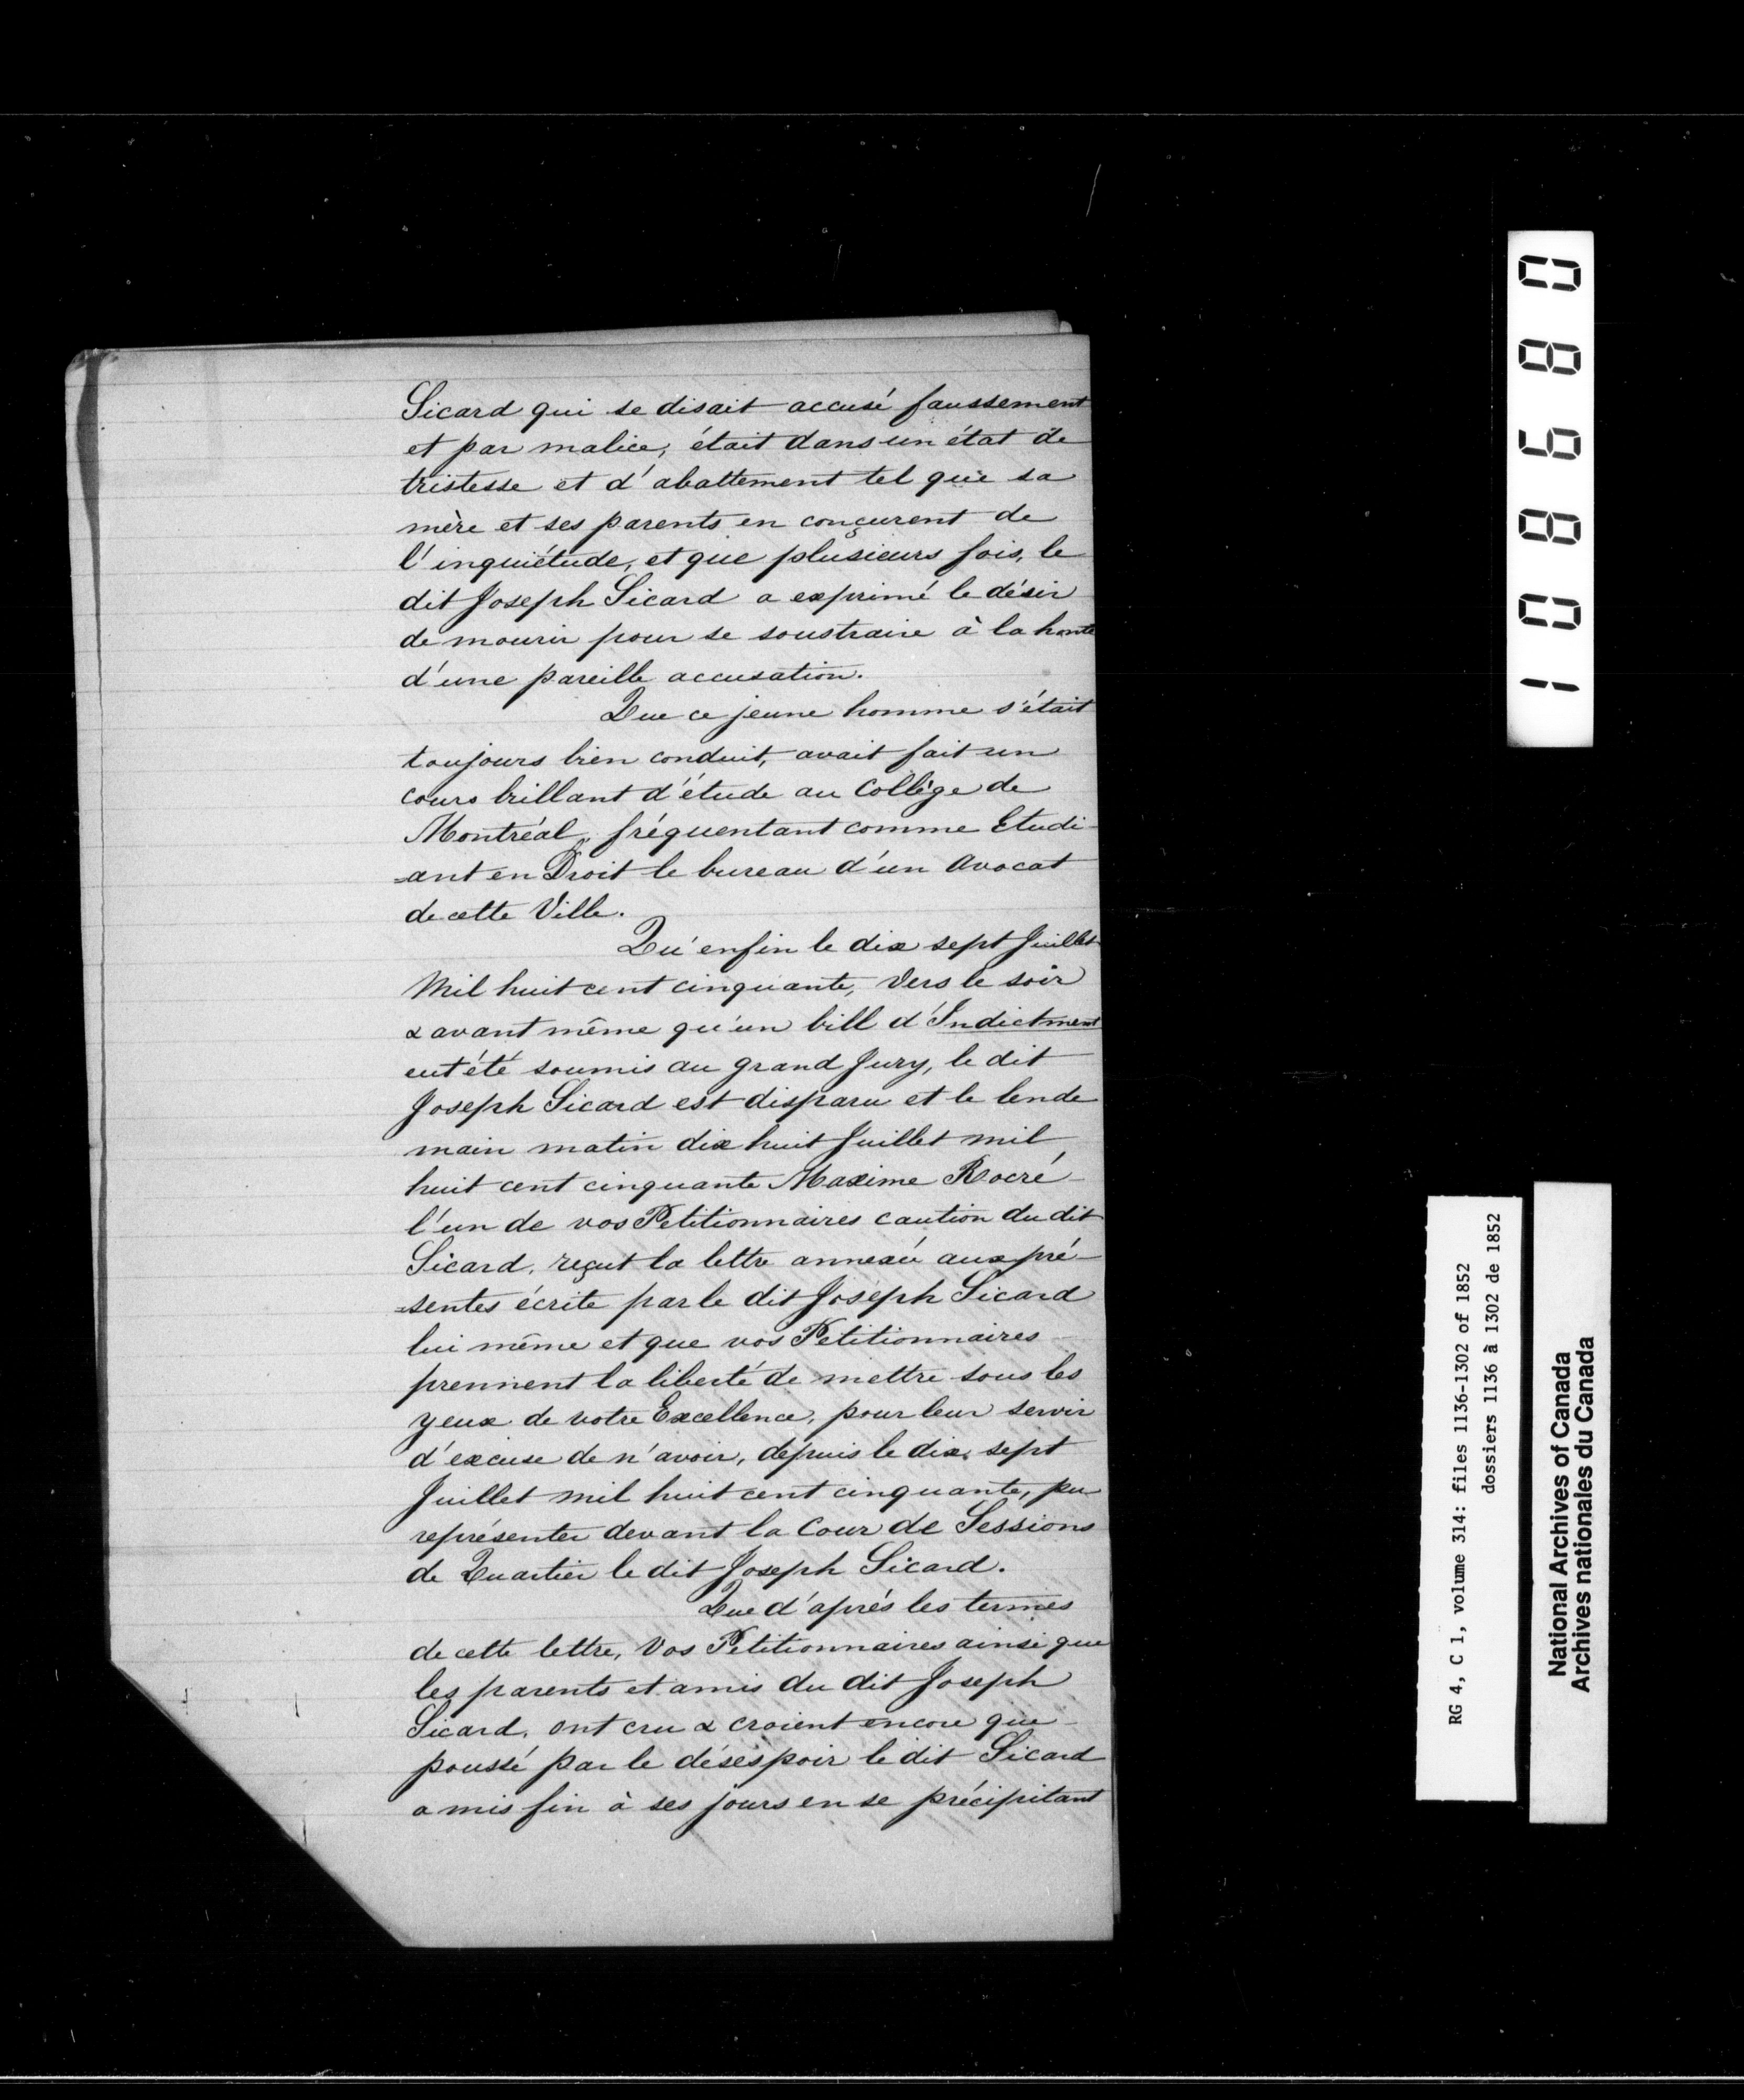 Sicard qui se disait accusé faussement
et par malice, était dans un état de
tristesse et d'abattement tel que sa
mère et ses parents en conçurent de
l'inquiétude, et que plusieurs fois, le
dit Joseph Sicard a exprimé le désir
de mourir pour se soustraire à la honte
d'une pareille accusation.
Que ce jeune homme s'était
toujours bien conduit, avait fait un
cours brillant d'étude au Collège de
Montréal, fréquentant comme Etudi-
-ant en Droit le bureau d'un Avocat
de cette Ville.
Qu'enfin le dix sept Juillet
Mil huit cent cinquante, Vers le soir
& avant même qu'un bill d'Indictment
eut été soumis au grand Jury, le dit
Joseph Sicard est disparu et le lende
main matin dix huit Juillet mil
huit cent cinquante Maxime Rocré
l'un de vos Petitionnaires caution du dit
Sicard, reçut la lettre annexée aux pré-
-sentes écrite par le dit Joseph Sicard
lui même et que vos Petitionnaires
prennent la liberté de mettre sous les
yeux de votre Excellence, pour leur servir
d'excuse de n'avoir, depuis le dix sept
Juillet mil huit cent cinquante, pu
représenter devant la Cour de Sessions
de Quartier le dit Joseph Sicard.
Que d'après les termes
de cette lettre, Vos Petitionnaires ainsi que
les parents et amis du dit Joseph
Sicard, ont cru & croient encore que
poussé par le désespoir le dit Sicard
a mis fin à ses jours en se précipitant
108680
RG 4, C 1, volume 314: files 1136-1302 of 1852
dossiers 1136 à 1302 de 1852
National Archives of Canada
Archives nationales du Canada